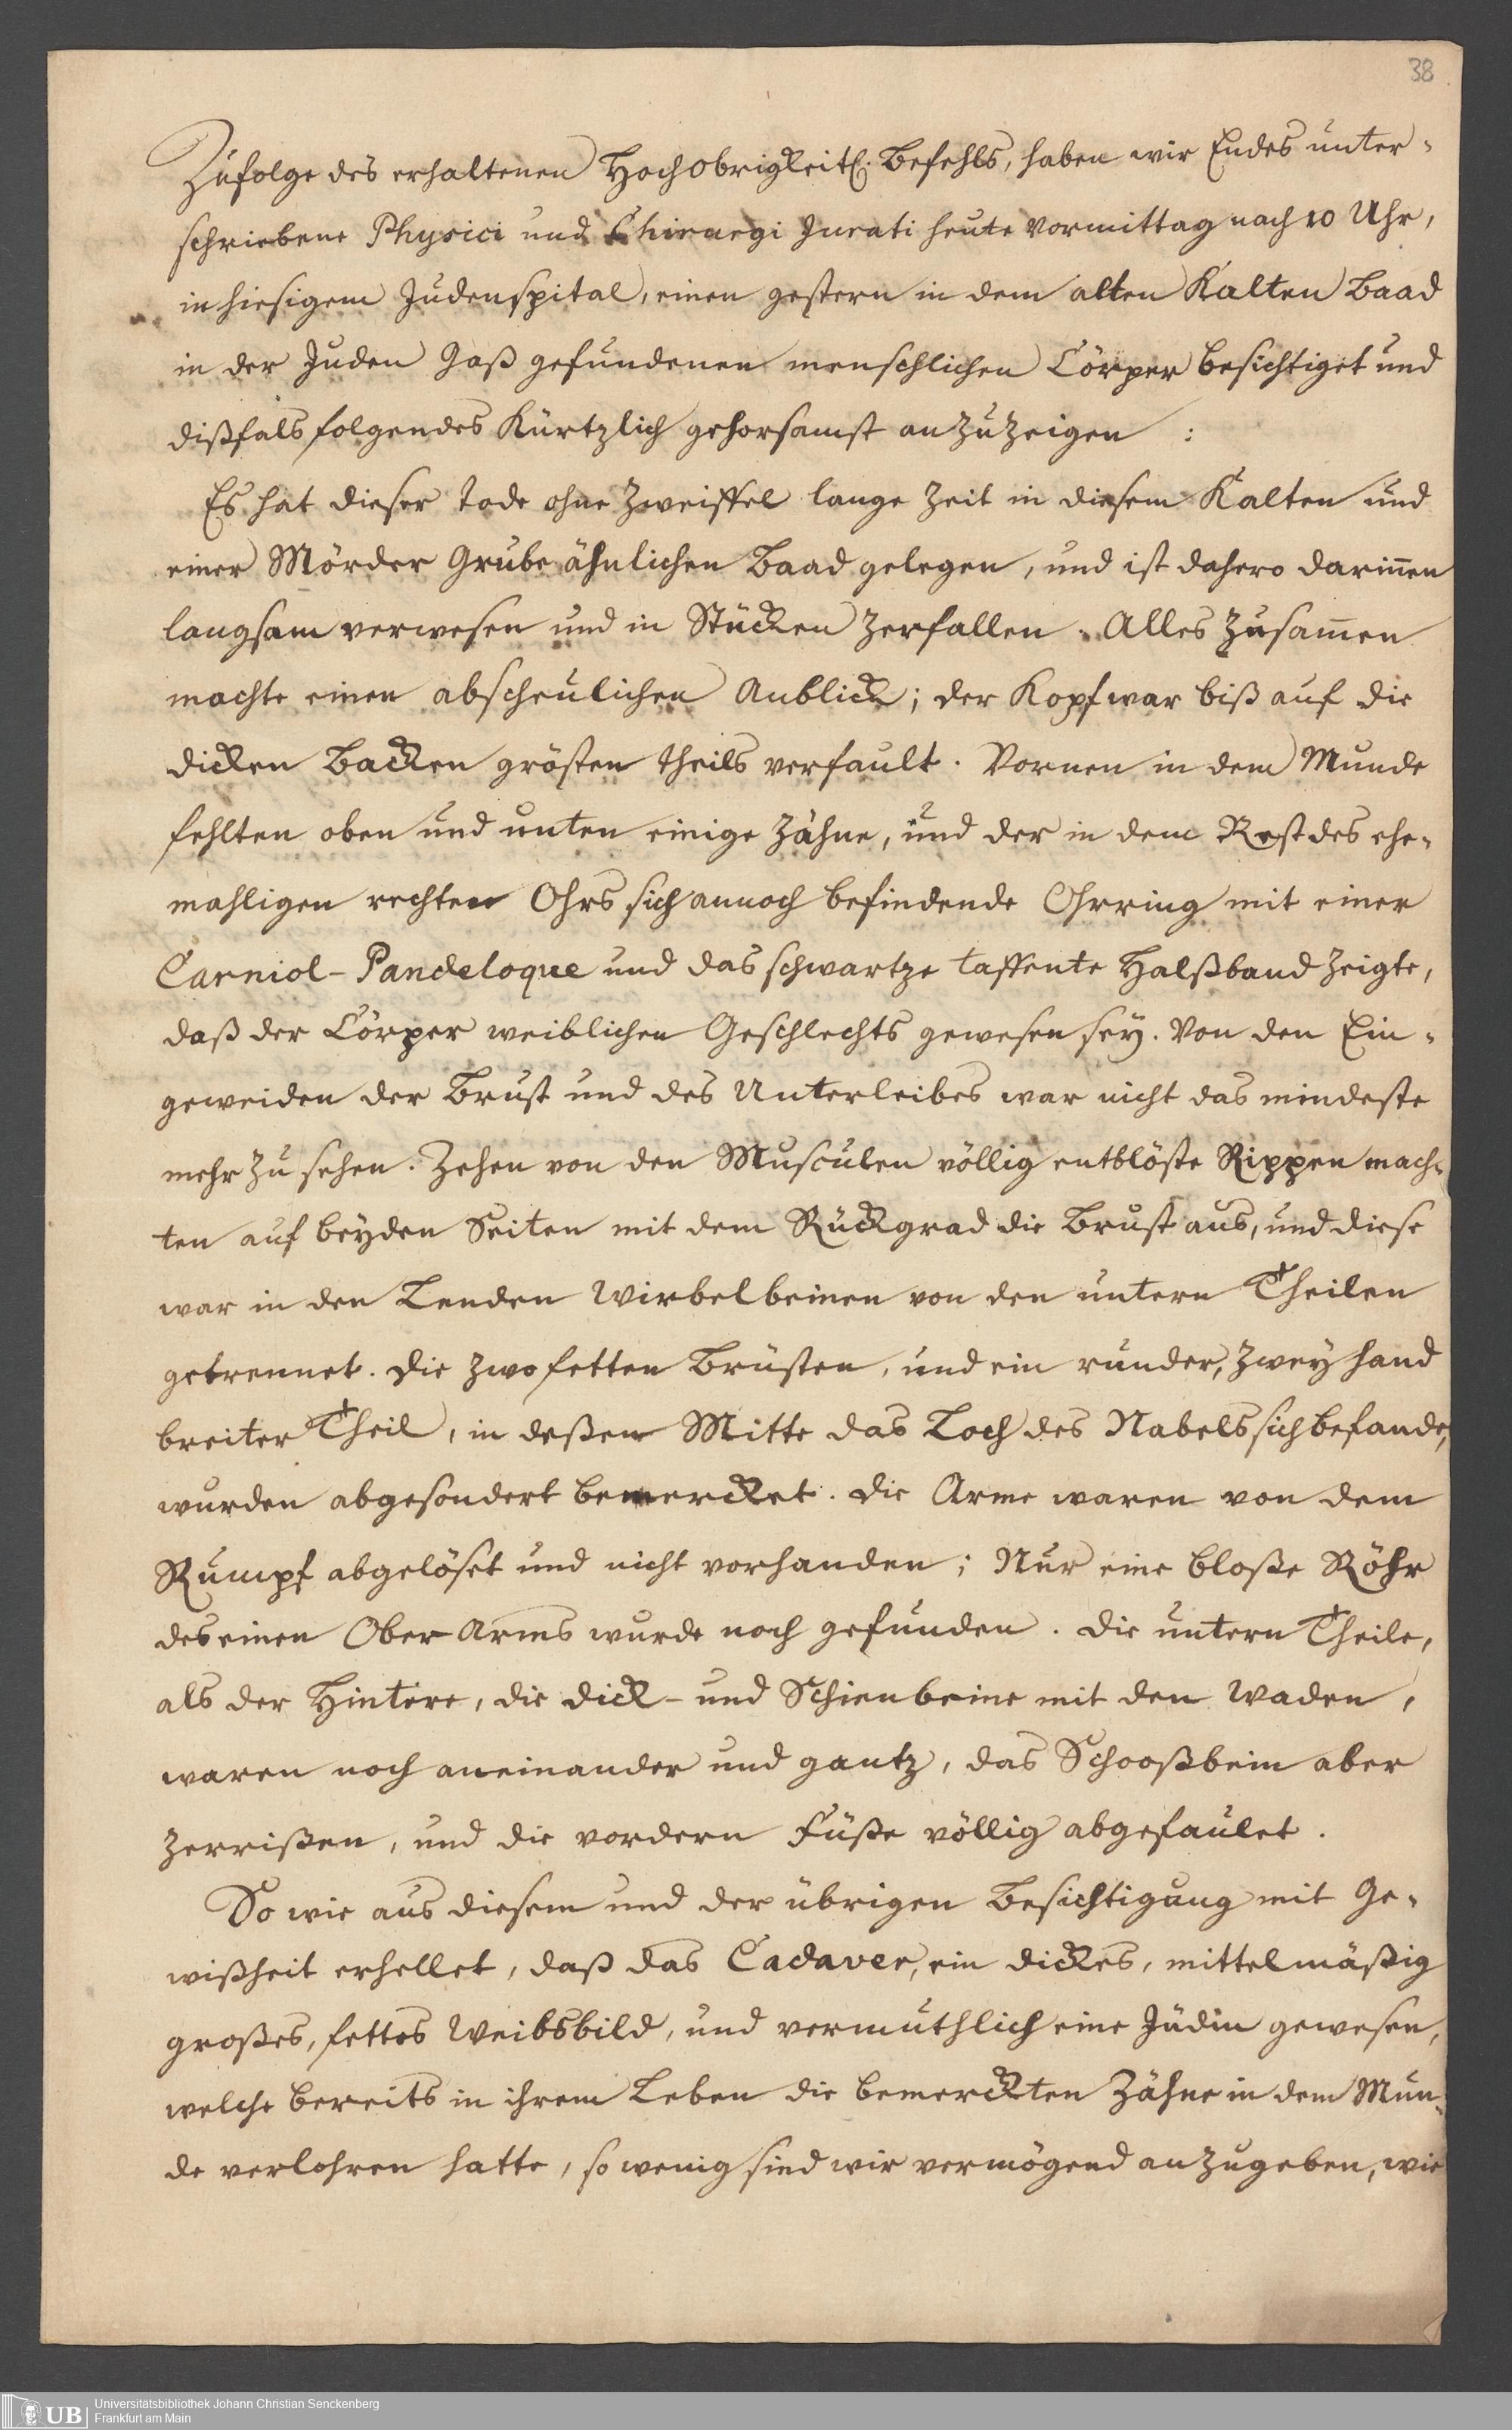 38
Zufolge des erhaltenen Hochobrigkeitl. Befehls, haben wir Endes unter-
schriebene Physici und Chirurgi Jurati heute Vormittag nach 10 Uhr,
in hiesigem Judenspital, einen gestern in dem alten Kalten Baad
in der Juden Gaß gefundenen menschlichen Cörper besichtiget und
dißfals folgendes Kürtzlich gehorsamst anzuzeigen :
Es hat dieser Tode ohne Zweiffel lange Zeit in diesem Kalten und
einer Mörder Grube ähnlichen Baad gelegen, und ist dahero darin̄en
langsam verwesen und in Stücken zerfallen. Alles zusam̄en
machte einen abscheulichen Anblick; der Kopf war biß auf die
dicken Backen grösten theils verfault. Vornen in dem Munde
fehlten oben und unten einige Zähne, und der in dem Rest des ehe-
mahligen rechten Ohrs sich annoch befindende Ohrring mit einer
Carniol-Pandeloque und das schwartze taffente Halßband zeigte,
daß der Cörper weiblichen Geschlechts gewesen sey. Von den Ein-
geweiden der Brust und des Unterleibes war nicht das mindeste
mehr zu sehen. Zehen von den Musculen völlig entblöste Rippen mach-
ten auf beyden Seiten mit dem Rückgrad die Brust aus, und diese
war in den Lenden Wirbelbeinen von den untern Theilen
getrennet. Die zwo fetten Brüsten, und ein runder, zwey hand
breiter Theil, in deßen Mitte das Loch des Nabels sich befande,
wurden abgesondert bemercket. Die Arme waren von dem
Rumpf abgelöset und nicht vorhanden; Nur eine bloße Röhr
des einen Ober Arms wurde noch gefunden. Die untern Theile,
als der Hintere, die dick- und Schienbeine mit den Waden,
waren noch aneinander und gantz, das Schooßbein aber
zerrißen, und die vordern Füße völlig abgefaulet.
So wie aus diesem und der übrigen Besichtigung mit Ge-
wißheit erhellet, daß das Cadaver, ein dickes, mittelmäßig
großes, fettes Weibsbild, und vermuthlich eine Jüdin gewesen,
welche bereits in ihrem Leben die bemerckten Zähne in dem Mun-
de verlohren hatte, so wenig sind wir vermögend anzugeben, wie
UB
Universitätsbibliothek Johann Christian Senckenberg
Frankfurt am Main